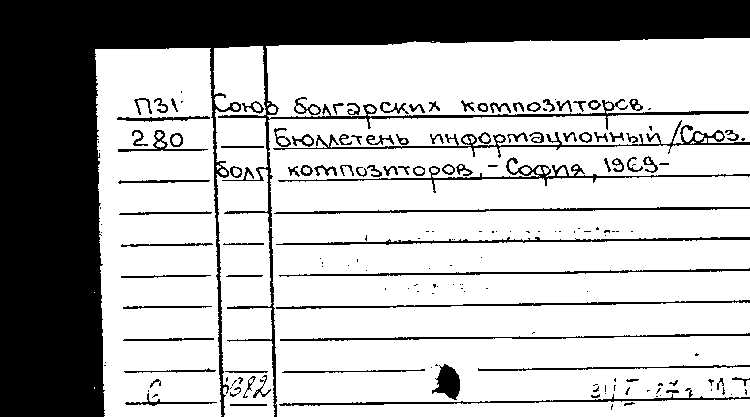 П31 Союз болгарских композиторов.
280 Бюллетень информационный / Союз.
болг. композиторов. - София, 1969-
6 1682 31/I-87г. М.Т